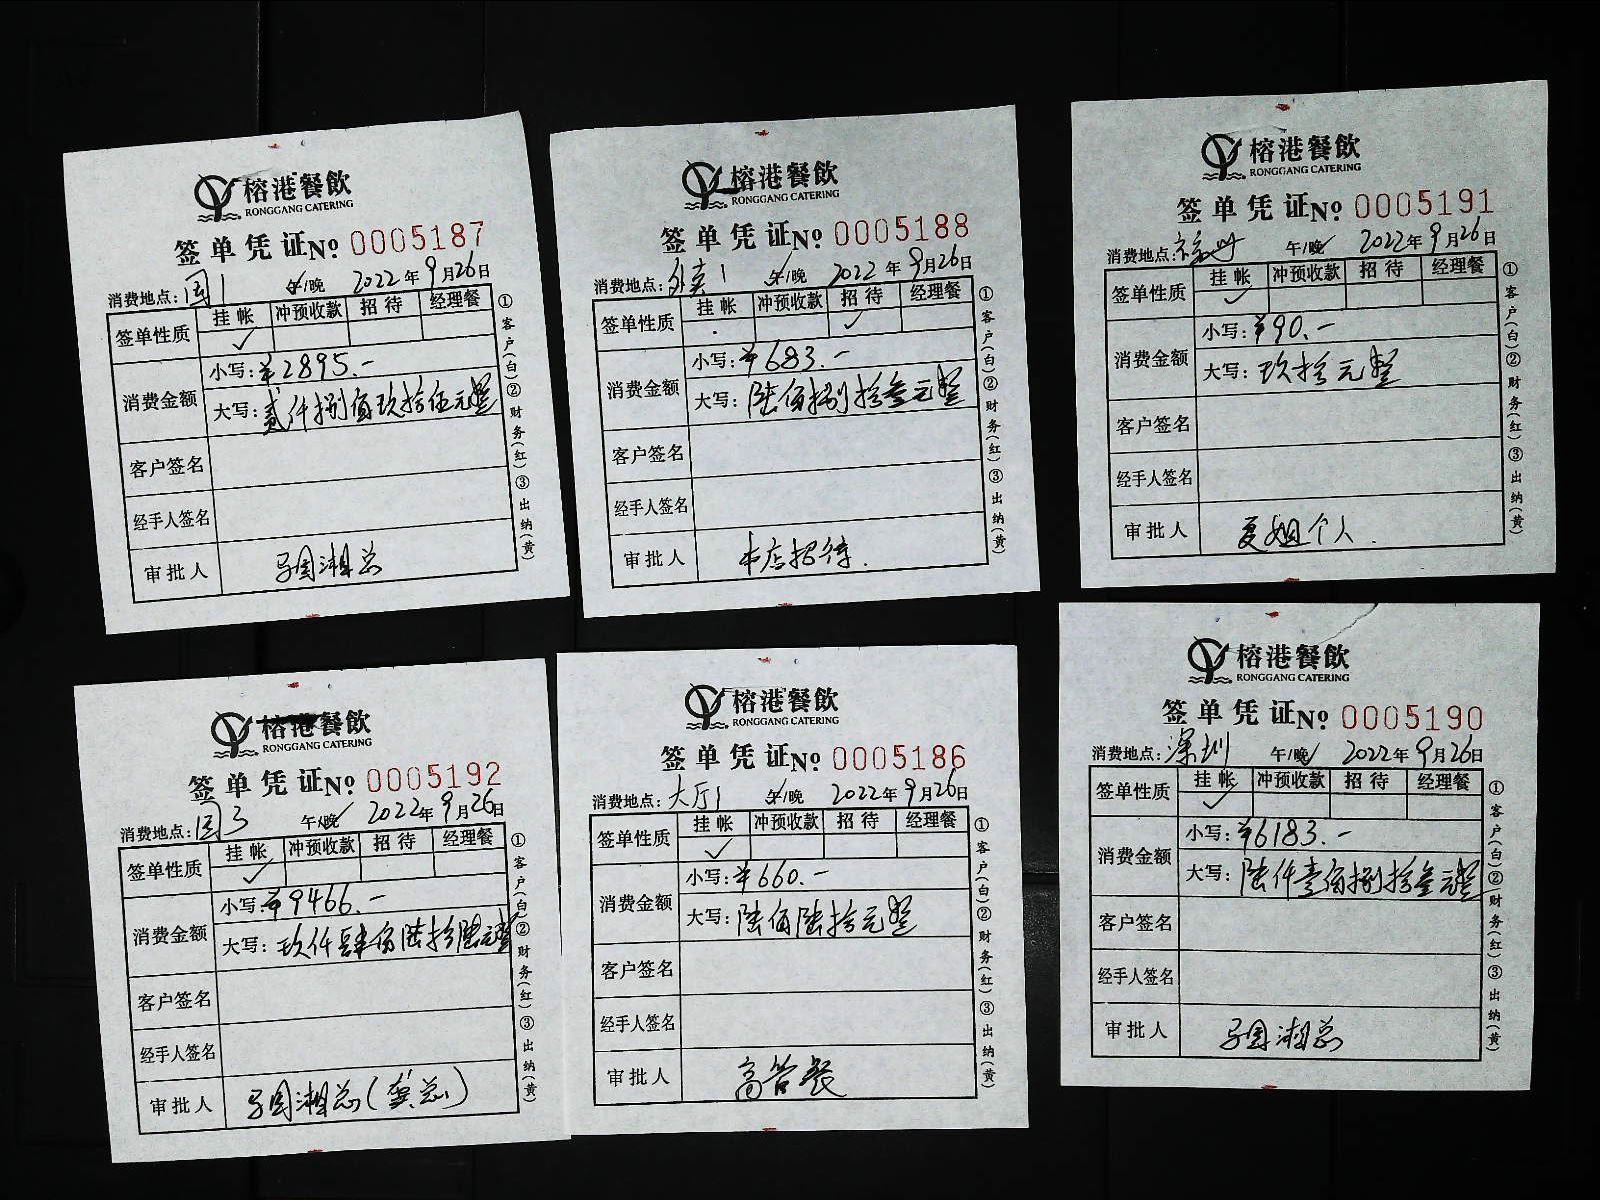 榕港餐飲
RONGGANG CATERING
签单凭证No 0005187
消费地点：国1 午/晚 2022年9月26日
签单性质 挂帐 冲预收款 招待 经理餐
✓
消费金额 小写：¥2895.-
大写：贰仟捌佰玖拾伍元整
客户签名
经手人签名
审批人 子国湘总
①客户(白)②财务(红)③出纳(黄)
榕港餐飲
RONGGANG CATERING
签单凭证No 0005188
消费地点：外卖1 午/晚 2022年9月26日
签单性质 挂帐 冲预收款 招待 经理餐
✓
消费金额 小写：¥683.-
大写：陆佰捌拾叁元整
客户签名
经手人签名
审批人 本店招待.
①客户(白)②财务(红)③出纳(黄)
榕港餐飲
RONGGANG CATERING
签单凭证No 0005191
消费地点： 午/晚 2022年9月26日
签单性质 挂帐 冲预收款 招待 经理餐
✓
消费金额 小写：¥90.-
大写：玖拾元整
客户签名
经手人签名
审批人 夏姐个人.
①客户(白)②财务(红)③出纳(黄)
榕港餐飲
RONGGANG CATERING
签单凭证No 0005192
消费地点：国3 午/晚 2022年9月26日
签单性质 挂帐 冲预收款 招待 经理餐
✓
消费金额 小写：¥9466.-
大写：玖仟肆佰陆拾陆元整
客户签名
经手人签名
审批人 子国湘总(龚总)
①客户(白)②财务(红)③出纳(黄)
榕港餐飲
RONGGANG CATERING
签单凭证No 0005186
消费地点：大厅1 午/晚 2022年9月26日
签单性质 挂帐 冲预收款 招待 经理餐
✓
消费金额 小写：¥660.-
大写：陆佰陆拾元整
客户签名
经手人签名
审批人 高管餐
①客户(白)②财务(红)③出纳(黄)
榕港餐飲
RONGGANG CATERING
签单凭证No 0005190
消费地点：深圳 午/晚 2022年9月26日
签单性质 挂帐 冲预收款 招待 经理餐
✓
消费金额 小写：¥6183.-
大写：陆仟壹佰捌拾叁元整
客户签名
经手人签名
审批人 子国湘总
①客户(白)②财务(红)③出纳(黄)